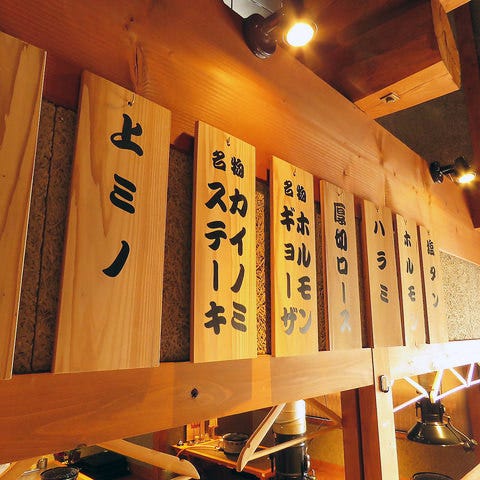 上ミノ
名物
カイノミ
ステーキ
名物
ホルモン
ギョーザ
厚切ロース
ハラミ
ホルモン
塩タン